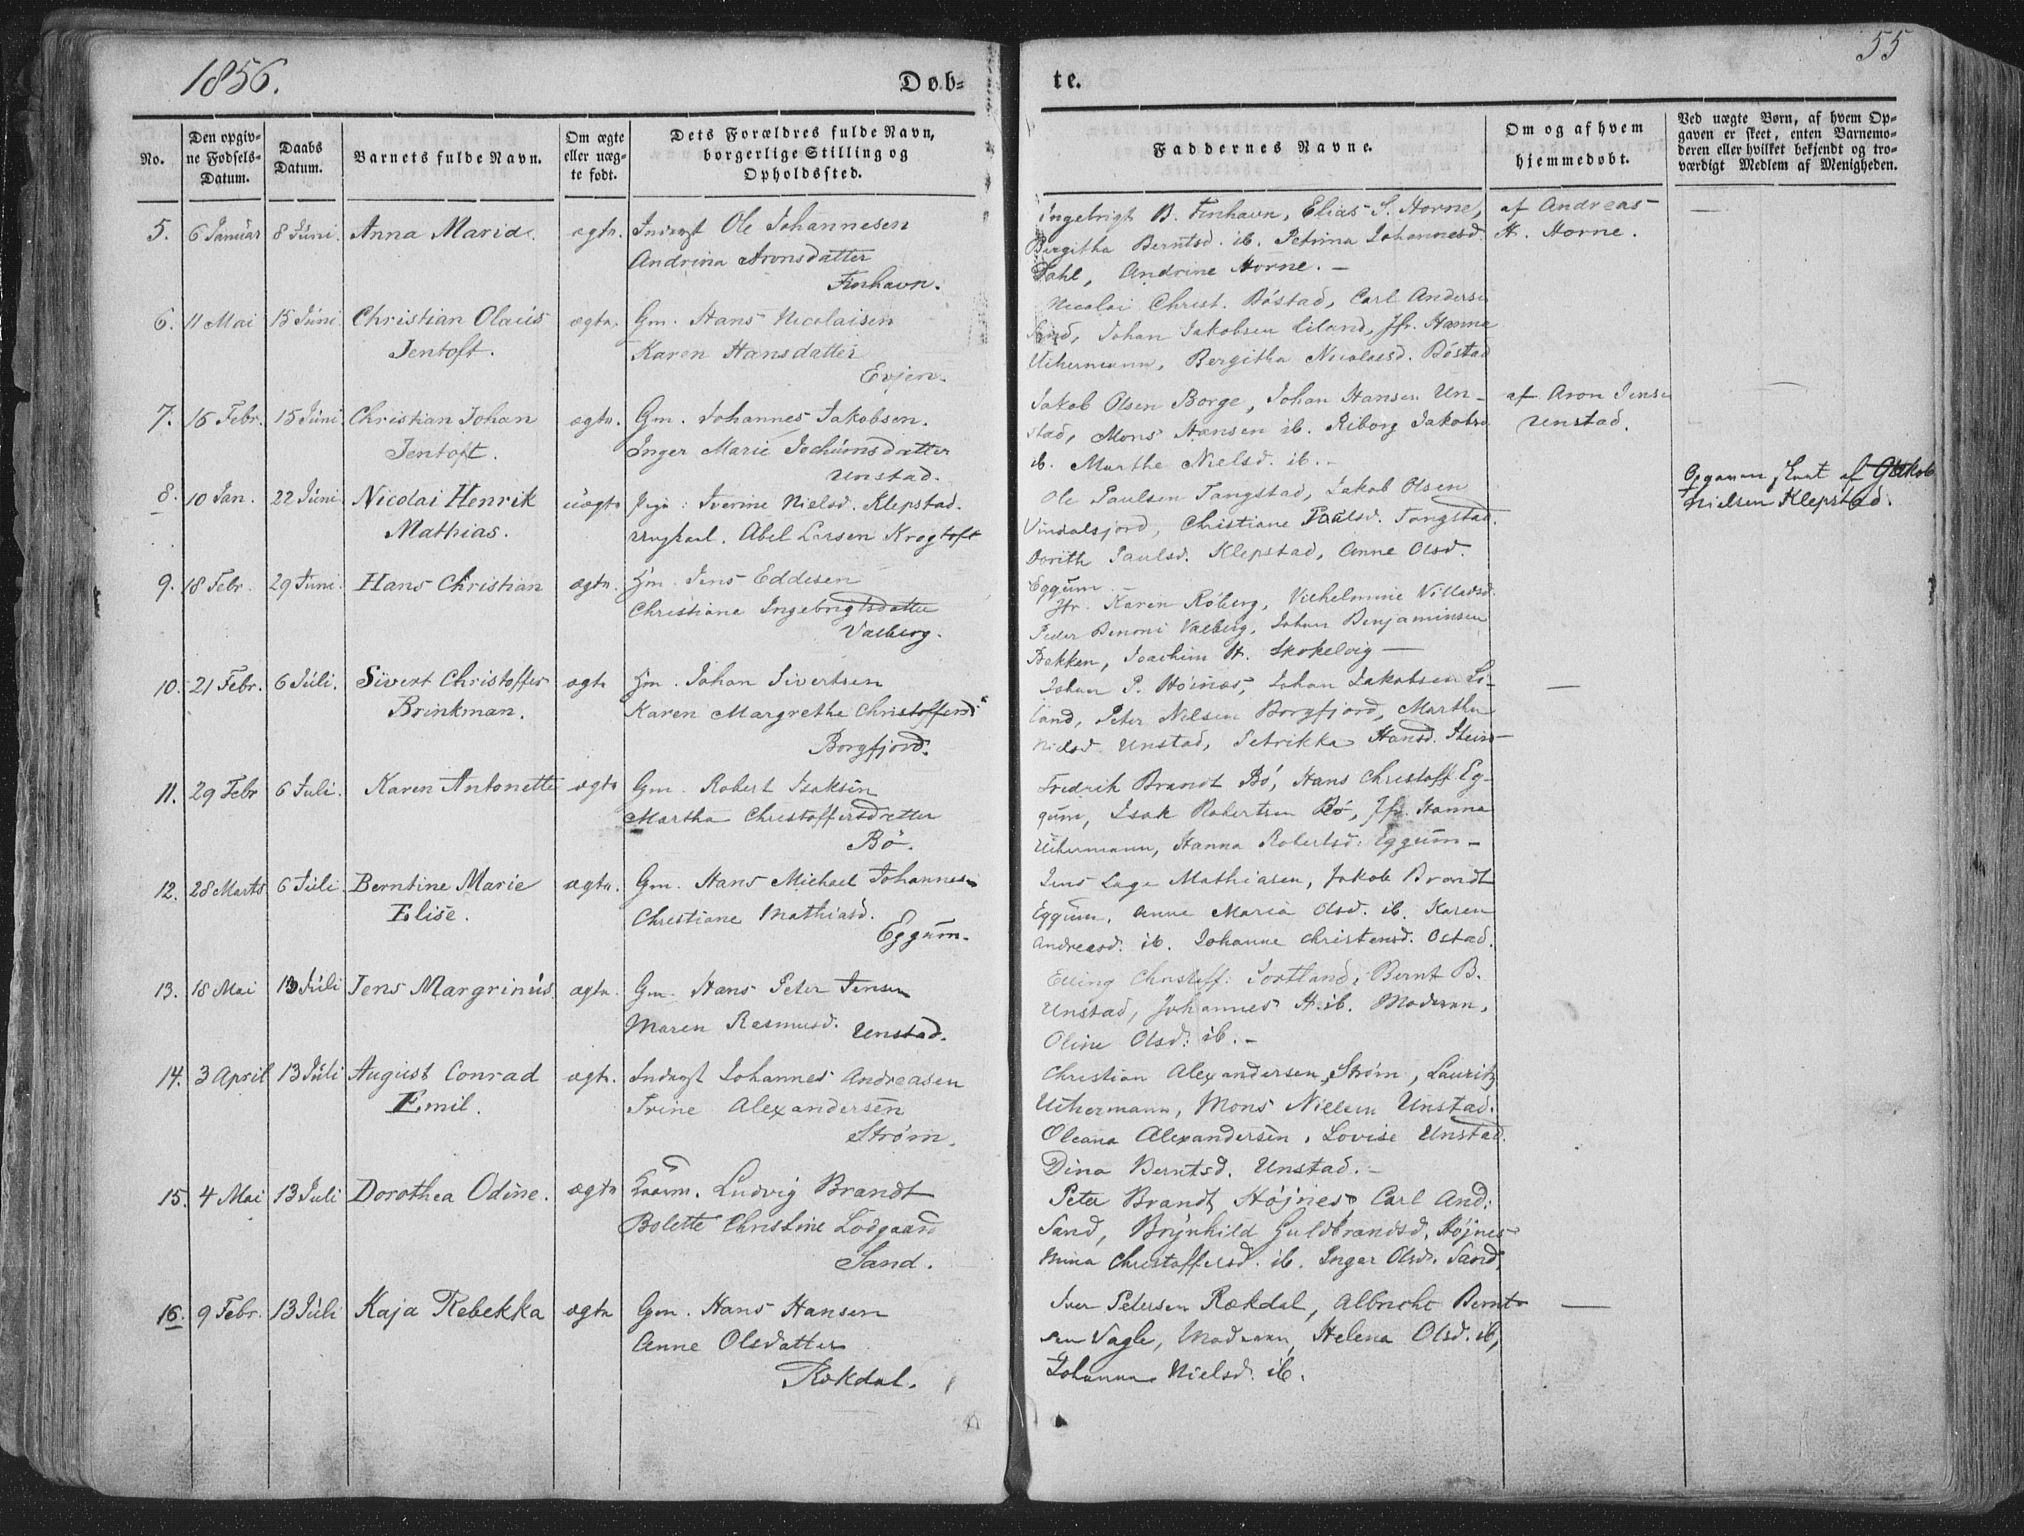 1856.
Døb-
te.
55
No.
Den opgiv-
ne Fødsels-
Datum.
Daabs
Datum.
Barnets fulde Navn.
Om ægte
eller uæg-
te født.
Dets Forældres fulde Navn,
borgerlige Stilling og
Opholdssted.
Faddernes Navne.
Om og af hvem
hjemmedøbt.
Ved uægte Børn, af hvem Op-
gaven er skeet, enten Barnemo-
deren eller hvilket bekjendt og tro-
værdigt Medlem af Menigheden.
5. 6 Januar 8 Juni. Anna Maria. ægte. Inderst Ole Johannesen
Andrina Aronsdatter
Finhavn.
Ingebrigt B. Finhavn, Elias S. Horne,
Bergitha Berntsd. ib. Petrina Johannesd.
Dahl, Andrine Horne. –
af Andreas
H. Horne.
6. 11 Mai 15 Juni. Christian Olaus
Jentoft.
ægte. Gm. Hans Nicolaisen
Karen Hansdatter
Evjen.
Nicolai Christ. Böstad, Carl Anders.
Sand, Johan Jakobsen Liland, Jfr. Hanna
Uchermann, Bergitha Nicolaisd. Böstad
7. 16 Febr. 15 Juni Christian Johan
Jentoft.
ægte. Gm. Johannes Jakobsen.
Inger Marie Jochumsdatter
Unstad.
Jakob Olsen Borge, Johan Hansen Un-
stad, Mons Hansen ib. Riborg Jakobsd.
ib. Marthe Nielsd. ib. –
af Aron Jens.
Unstad.
8. 10 Jan. 22 Juni Nicolai Henrik
Mathias.
uægte Pige: Iverine Nielsd. Klepstad.
Ungkarl. Abel Larsen Krogtoft
Ole Paulsen Tangstad, Jakob Olsen
Vindalsfjord, Christiane Paulsd. Tangstad.
Dorith Paulsd. Klepstad, Anne Olsd.
Eggum
Opgaven skeet af Jakob
Nielsen Klepstad.
9. 18 Febr. 29 Juni. Hans Christian ægte. Hm. Jens Eddesen
Christiane Ingebrigtsdatter
Valberg.
Jfr. Karen Röberg, Vilhelmine Villadsd.
Peder Benoni Valberg, Johan Benjaminsen
Bakken, Joachim H. Skokelvig –
10. 21 Febr. 6 Juli. Sivert Christoffer
Brinkman.
ægte Hm. Johan Sivertsen
Karen Margrethe Christoffersd.
Borgfjord.
Johan P. Höines, Johan Jakobsen Li-
land, Peter Nilsen Borgfjord, Martha
Nielsd. Unstad, Petrikka Hansd. Stein
11. 29 Febr 6 Juli. Karen Antonette ægte Gm. Robert Isaksen
Martha Christoffersdatter
Bö.
Fredrik Brandt Bö, Hans Christoff. Eg-
gum, Isak Robertsen Bö, Jfr. Hanna
Uchermann, Hanna Robertsd: Eggum –
12. 28 Marts 6 Juli Berntine Marie
Elise.
ægte. Gm. Hans Michael Johannesen
Christiane Mathiasd.
Eggum.
Jens Lage Mathiasen, Jakob Brandt
Eggum, Anne Maria Olsd. ib. Karen
Andreasd. ib. Johanne Christensd. Ostad.
13. 18 Mai 13 Juli Jens Margrinus ægte. Gm. Hans Peter Jensen
Maren Rasmusd. Unstad.
Elling Christoff. Sortland, Bernt B.
Unstad, Johannes H. ib. Moderen,
Oline Olsd: ib. –
14. 3 April 13 Juli August Conrad
Emil.
ægte. Inderst Johannes Andreasen
Trine Alexandersen
Strøm.
Christian Alexandersen Strøm, Lauritz
Uchermann, Mons Nielsen Unstad.
Oleana Alexandersen, Lovise Unstad.
Dina Berntsd. Unstad. –
15. 4 Mai 13 Juli Dorothea Odine. ægte Ludvig Brandt
Bolette Christine Lodgaard
Sand.
Peter Brandt Højnes, Carl And:
Sand, Brynhild Guldbrandsd. Højnes
Mina Christoffersd. ib. Inger Olsd. Sand.
16. 9 Febr. 13 Juli Kaja Rebekka ægte Gm. Hans Hansen
Anne Olsdatter
Rækdal.
Iver Petersen Rækdal, Albricht Bernt-
sen Vagle, Moderen, Helena Olsd. ib,
Johanna Nielsd. ib.